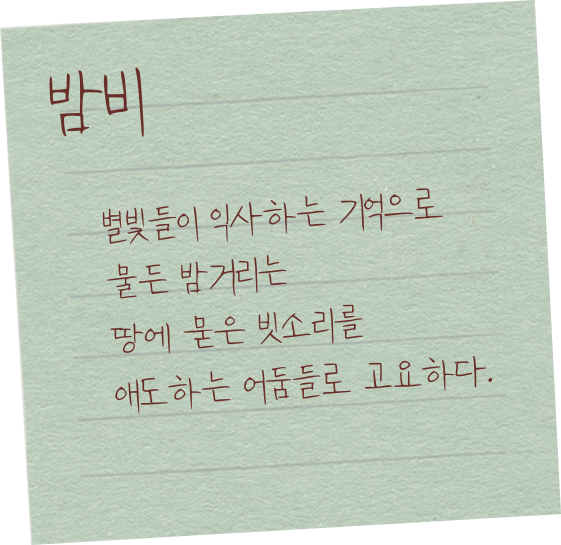 밤비
별빛들이 익사하는 기억으로
물든 밤거리는
땅에 묻은 빗소리를
애도하는 어둠들로 고요하다.